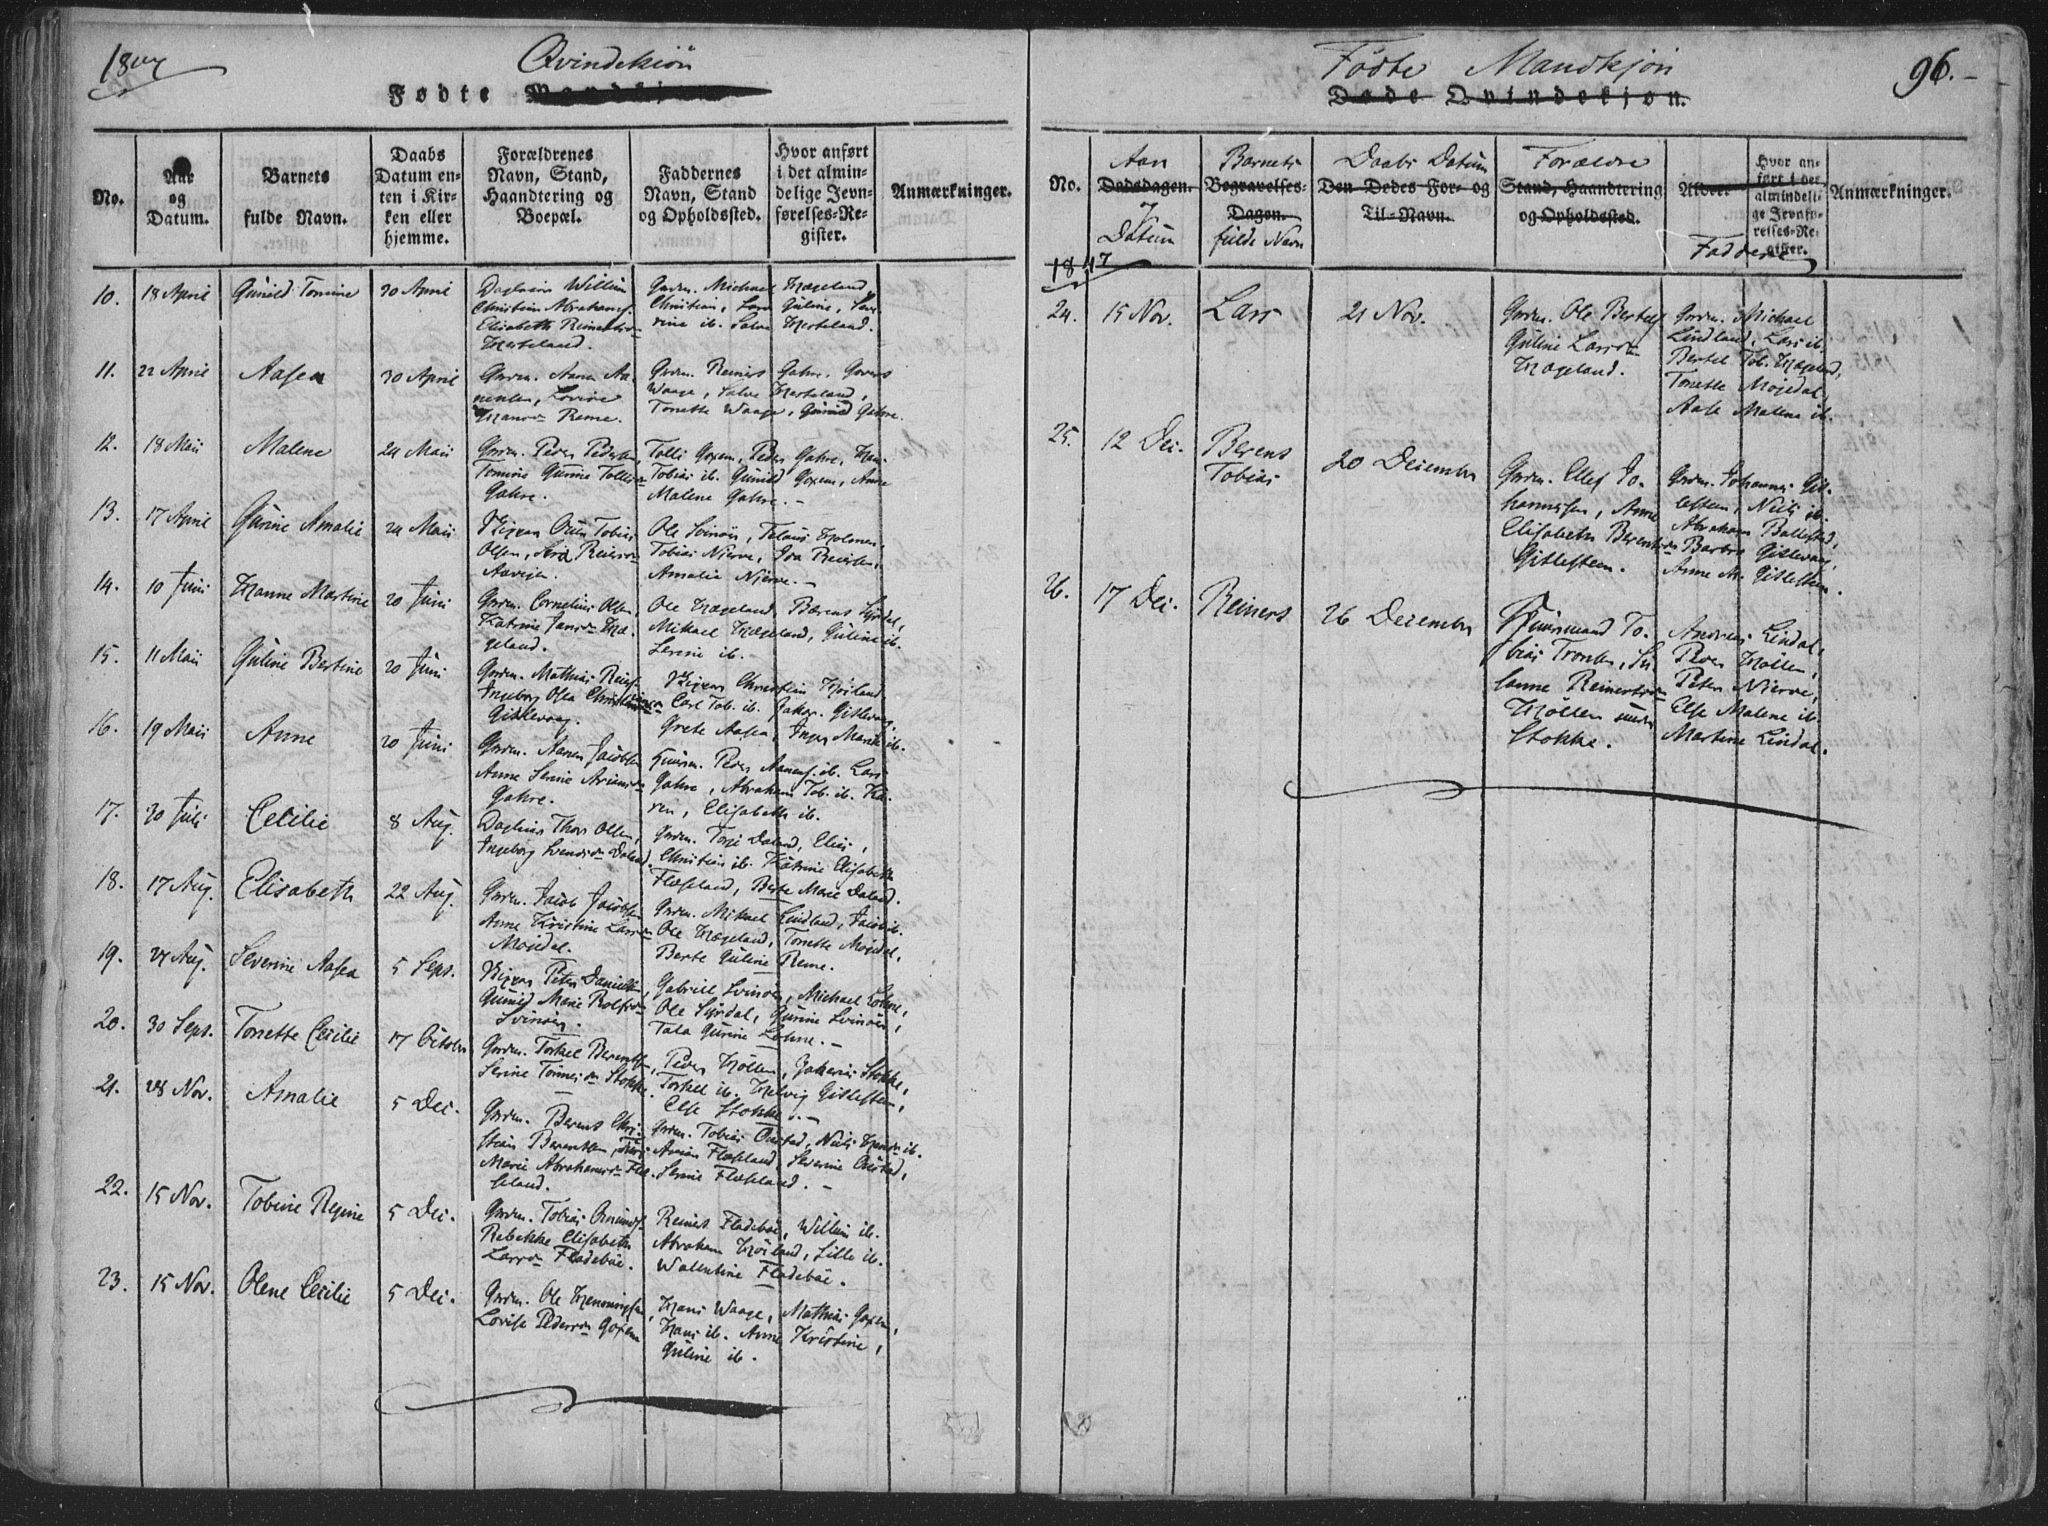 1847
Qvindekjön
Fødte Mandkjøn
No.
Aar og Datum.
Barnets fulde Navn.
Daabs Datum enten i Kirken eller hjemme.
Forældrenes Navn, Stand, Haandtering og Boepæl.
Faddernes Navn, Stand og Opholdssted.
Hvor anført i det almindelige Jevnførelses-Register.
Anmærkninger.
10. 18 April Gunild Tomine 30 April
Daglein Willum Christian Abrahams. Elisabeth Reinertsdr
Gmdm. Michael Hægeland, Christian, Lars Guline, Salve Herteland.
11. 22 April Aasea 30 April
Gmdm. Aanen Aanensen, Lovise Hansdr Reme.
Gmdm. Reiners Gahre, Govert Waage, Salve Herteland, Tonette Waage, Gunild Gahre.
12. 18 Maii Malene 24 Maii
Gmdm. Peder Pedersen, Tomine Gurine Tollisdr Gahre.
Tolli Goxem, Peder Gahre, Tobias ib. Gunild Goxem, Anne Malene Gahre. -
13. 17 April Gurine Amalie 24 Maii
Tobias Olsen, Reiersdr
Ole Svinör, Tobias Njerve, Amalie Njerve. -
14. 10 Juni Hanne Martine 20 Juni
Gmdm. Cornelius Olsen, Katrine Jansdr Hægeland.
Ole Hægeland, Berens Syrdal, Mikael Hægeland, Guline ib. Serine ib.
15. 11 Maii Guline Bertine 20 Juni
Gmdm. Mathias Reiers. Ingeborg Olea Gislevaag.
Christian Hörland Carl Tob. ib. Jakob Gislevaag, Grete Aasea, Inger Marie ib.
16. 19 Maii Anne 20 Juni
Gmdm. Aanen Jacobsen Anne Serine Gahre.
Peder Aanens. ib. Lars Gahre, Abraham Tob. ib. Karen, Elisabeth ib.
17. 30 Juli Cecilie 8 Aug.
Thore Olsen, Ingeborg Svendsdr Daland.
Gmdm. Torje Daland, Elias, Christian ib. Katrine Elisabeth Fladseland, Berte Marie Daland.
18. 17 Aug. Elisabeth 22 Aug.
Gmdm. Jacob Jacobsen Anne Kristine Larsdr Møjedal.
Gmdm. Mikael Lindland, Jacob ib. Ole Hægeland, Tonette Møjedal, Berte Guline Reme.
19. 24 Aug. Severine Aasea 5 Sept.
Peter Danielsen, Gunild Marie Rolfsdr Svinör.
Gabriel Svinör, Michael Lohne, Ole Syrdal, Gurine Svinör, Tala Gurine Lohne. -
20. 30 Sept. Tonette Cecilie 17 October
Gmdm. Torkel Berentsen, Serine Tönnesdr Stokke.
Peder Höllen, Zakarias Stokke, Torkel ib. Helvig Gislestem, Else Stokke. -
21. 28 Nov. Amalie 5 Dec.
Gmdm. Berens Christian Berentsen, Marie Abrahamsdr Fladseland.
Gmdm. Tobias Ourstad, Niels ib. Arian Fladseland, Severine Ourstad, Serine Fladseland. -
22. 15 Nov. Tobine Regine 5 Dec.
Gmdm. Tobias Rebekke Elisabeth Larsdr Fladeböe.
Reinert Fladeböe, Willum ib. Abraham Hörland, Sille ib. Wallentine Fladeböe.
23. 15 Nov. Olene Cecilie 5 Dec.
Gmdm. Ole Henningsen, Lovise Pedersdr Goxem
Hans Waage, Mathias Goxem, Hans ib. Anne Kristine, Guline ib.
Födte Mandkjön
96.-
Døde Qvindekjøn.
No.
Aar & Datum
Dødsdagen.
Barnets fulde Navn
Begravelses-Dagen.
Daabs Datum
Den Dødes For- og Til-Navn.
Forældre
Stand, Haandtering og Opholdssted.
Alder.
Faddere
Hvor anført i det almindelige Jevnførelses-Register.
Anmærkninger.
1847
24. 15 Nov. Lars 21 Nov.
Gmdm. Ole Bertels. Guline Larsdr Hægeland.
Gmdm. Michael Lindland, Lars ib. Bertel Tob. Hægeland, Tonette Møjedal, Aase Malene ib.
25. 12 Dec. Berens Tobias 20 December
Gmdm. Ellef Johannessen, Anne Elisabeth Berentsdr Gislestem.
Gmdm. Johannes Gislestem, Niels ib. Abraham Ballestad, Barbro Gislevaag, Anne M. Gislestem.
26. 17 Dec. Reinert 26 December
Huusmand Tobias Tronsen, Susanne Reinertsdr Höllen under Stokke.
Andreas Lindal, Peder Höllen, Peter Njerve, Else Malene ib. Martine Lindal.